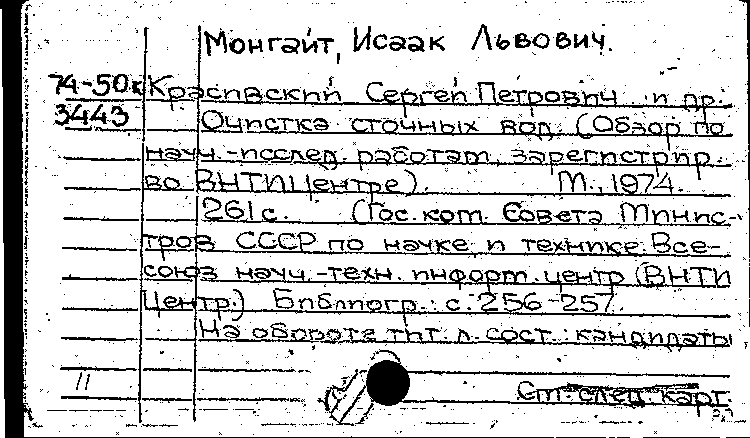 Монгайт, Исаак Львович.
74-50к Красавский Сергей Петрович и др.
3443 Очистка сточных вод. (Обзор по
науч.-исслед. работам, зарегистрир.
во ВНТИЦентре). М., 1974.
261 с. (Гос. ком. Совета Минис-
тров СССР по науке и технике. Все-
союз науч.-техн. информ. центр (ВНТИ
Центр.) Библиогр.: с. 256-257.
На обороте тит. л. сост.: кандидаты
11 См. след. карт.